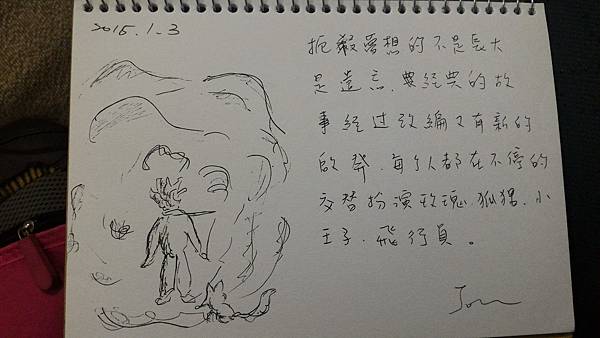 2015.1.3
扼殺夢想的不是長大
是遺忘.典經典的故
事經过改編又有新的
啟發.每个人都在不停的
交替扮演玫瑰.狐狸.小
王子.飛行員。